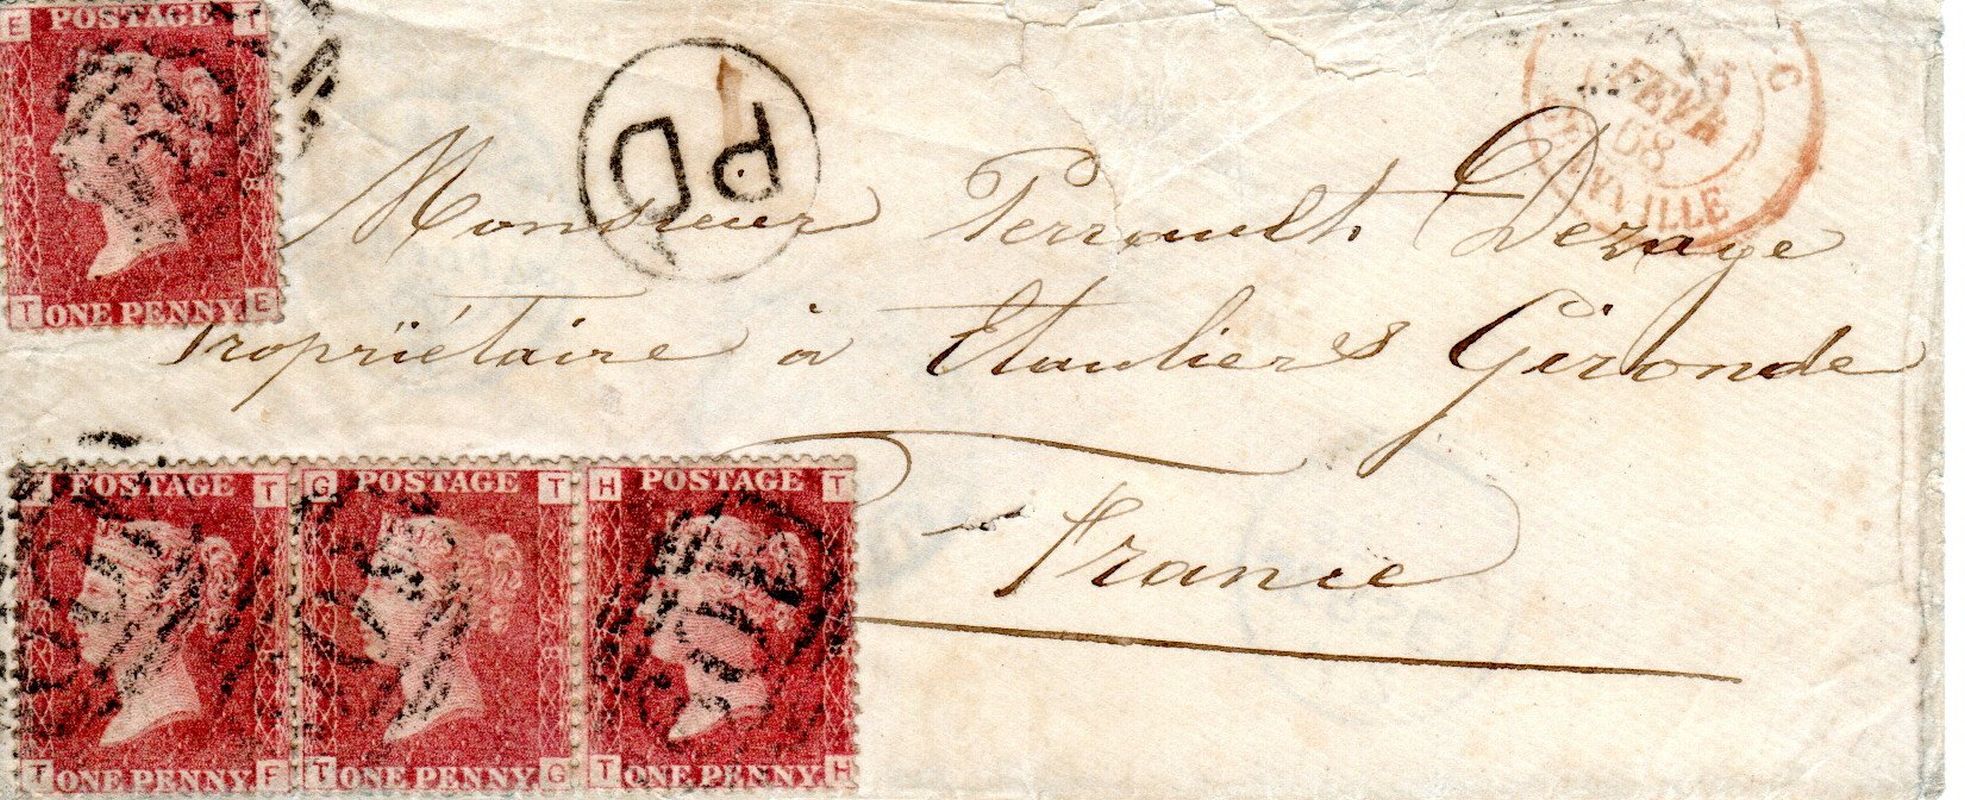 E POSTAGE T
T ONE PENNY E
PD
FEVR
68
Monsieur Perrault Dezage
Propriëtaire à Etauliers Gironde
France
POSTAGE T
T ONE PENNY F
G POSTAGE T
T ONE PENNY G
H POSTAGE T
T ONE PENNY H